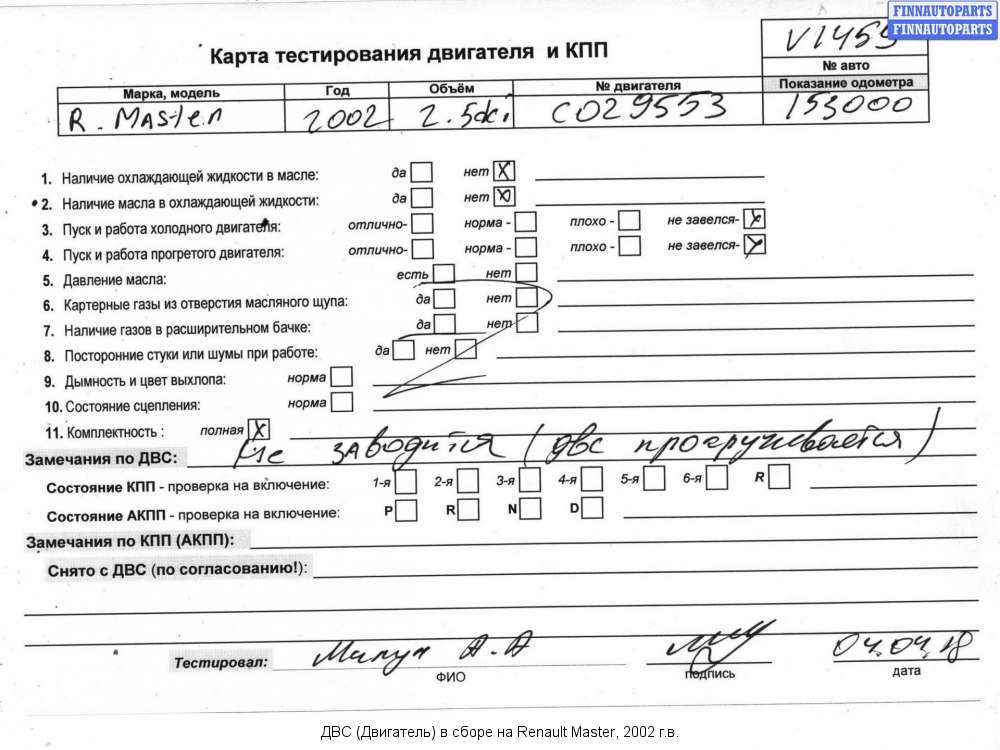 FINNAUTOPARTS
FINNAUTOPARTS
V1455
Карта тестирования двигателя и КПП
№ авто
Марка, модель Год Объём № двигателя Показание одометра
R. Master 2002 2.5dci C029553 153000
1. Наличие охлаждающей жидкости в масле: да нет X
2. Наличие масла в охлаждающей жидкости: да нет X
3. Пуск и работа холодного двигателя: отлично- норма - плохо - не завелся- X
4. Пуск и работа прогретого двигателя: отлично- норма - плохо - не завелся- X
5. Давление масла: есть нет
6. Картерные газы из отверстия масляного щупа: да нет
7. Наличие газов в расширительном бачке: да нет
8. Посторонние стуки или шумы при работе: да нет
9. Дымность и цвет выхлопа: норма
10. Состояние сцепления: норма
11. Комплектность : полная X
Замечания по ДВС: Не заводится (двс прокручивается)
Состояние КПП - проверка на включение: 1-я 2-я 3-я 4-я 5-я 6-я R
Состояние АКПП - проверка на включение: P R N D
Замечания по КПП (АКПП):
Снято с ДВС (по согласованию!):
Тестировал: А.А 04.04.18
ФИО подпись дата
ДВС (Двигатель) в сборе на Renault Master, 2002 г.в.